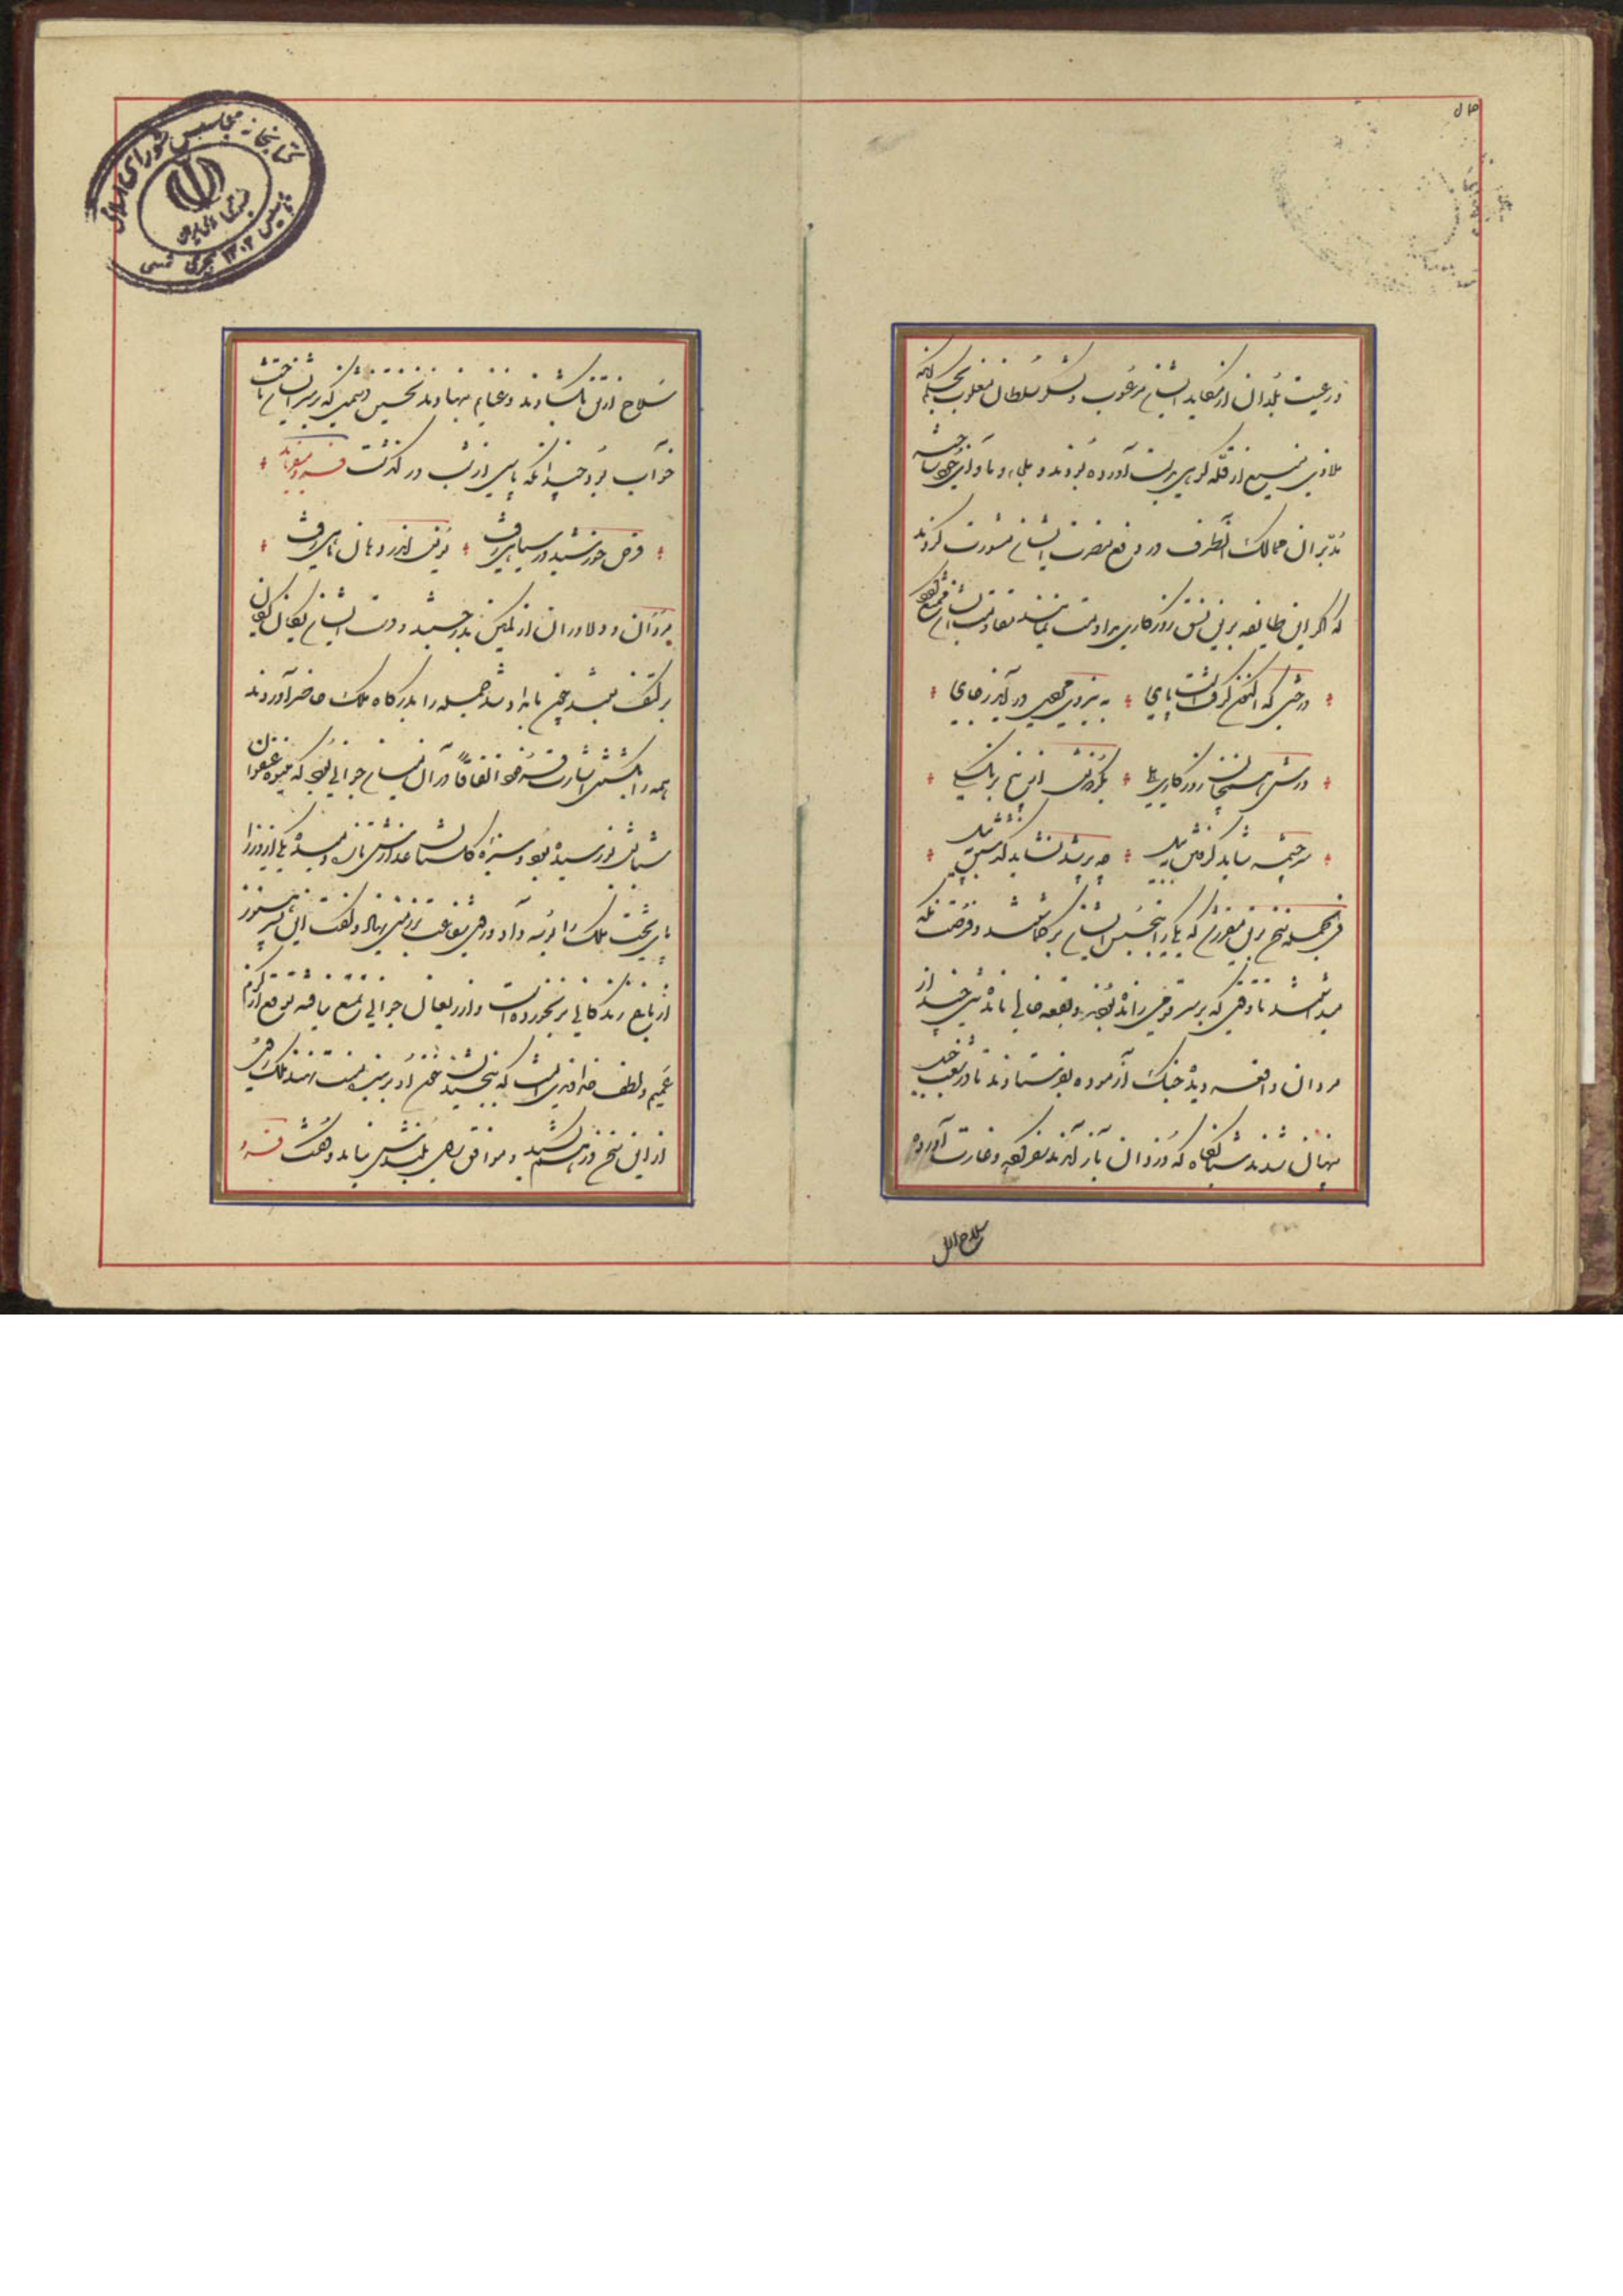 و رعیت بلدان از مکاید ایشان مرعوب و لشکر سلطان مغلوب بحکم آنکه
ملاذی منیع از قله کوهی بدست آورده بودند و ملجاء و ماوای خود ساخته
مدبران ممالک آنطرف در دفع مضرت ایشان مشورت کردند
که اگر این طایفه برین نسق روزگاری مداومت نمایند مقاومت ایشان ممتنع گردد
درختی که اکنون گرفتست پای به نیروی شخصی در آید زجای
ورش همچنان روزگاری هلی بگردونش از بیخ بر نگسلی
سر چشمه شاید گرفتن به بیل چو پر شد نشاید گذشتن به پیل
فی الجمله سخن برین مقرر شد که یکی را بتجسس ایشان برگماشتند و فرصت نگه
میداشتند تا وقتی که بر سر قومی رانده بودند و بقعه خالی مانده تنی چند از
مردان واقعه دیده جنگ آزموده بفرستادند تا در شعب جبل
پنهان شدند شبانگاه که دزدان باز آمدند سفر کرده و غارت آورده
سلاح از تن
سلاح از تن بگشادند و غنایم بنهادند نخستین دشمنی که بر سر ایشان تاخت
خواب بود چندانکه پاسی از شب در گذشت
قرص خورشید در سیاهی رفت یونس اندر دهان ماهی رفت
مردان دلاوران از کمین بدر جستند و دست ایشان یکان یکان
بر کتف بستند بامدادان جمله را بدرگاه ملک حاضر آوردند
همه را بکشتن اشارت فرمود اتفاقا در آن میان جوانی بود که میوه عنفوان
شبابش نو رسیده بود و سبزه گلستان عذارش تازه دمیده یکی از وزرا
پای تخت ملک را بوسه داد و روی شفاعت بر زمین نهاد و گفت این پسر هنوز
از باغ زندگانی بر نخورده است و از ریعان جوانی تمتع نیافته توقع از کرم
عمیم و لطف خداوندی آنست که ببخشیدن خون او بر بنده منت نهند ملک روی
از این سخن در هم کشید و موافق رای بلندش نیامد و گفت فرد